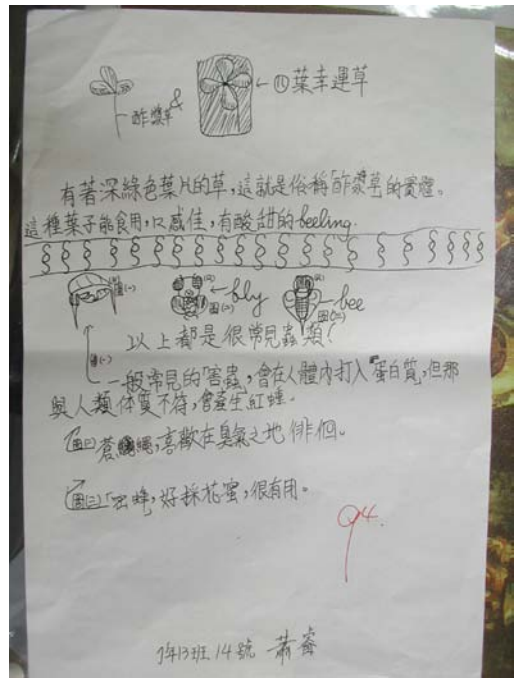 酢漿草 & ←四葉幸運草
有著深綠色葉片的草，這就是俗稱「酢漿草」的實體。
這種葉子能食用，口感佳，有酸甜的feeling.
圖(一) 圖(二)←fly 圖(三)←bee
以上都是很常見蟲類！
圖(一)
一般常見的「害蟲」，會在人體內打入「蛋白質」，但那
與人類体質不符，會產生紅腫。
圖(二)蒼蠅，喜歡在臭氣之地徘徊。
圖(三)「蜜蜂」，好採花蜜，很有用。
94.
7年13班 14號 蕭睿